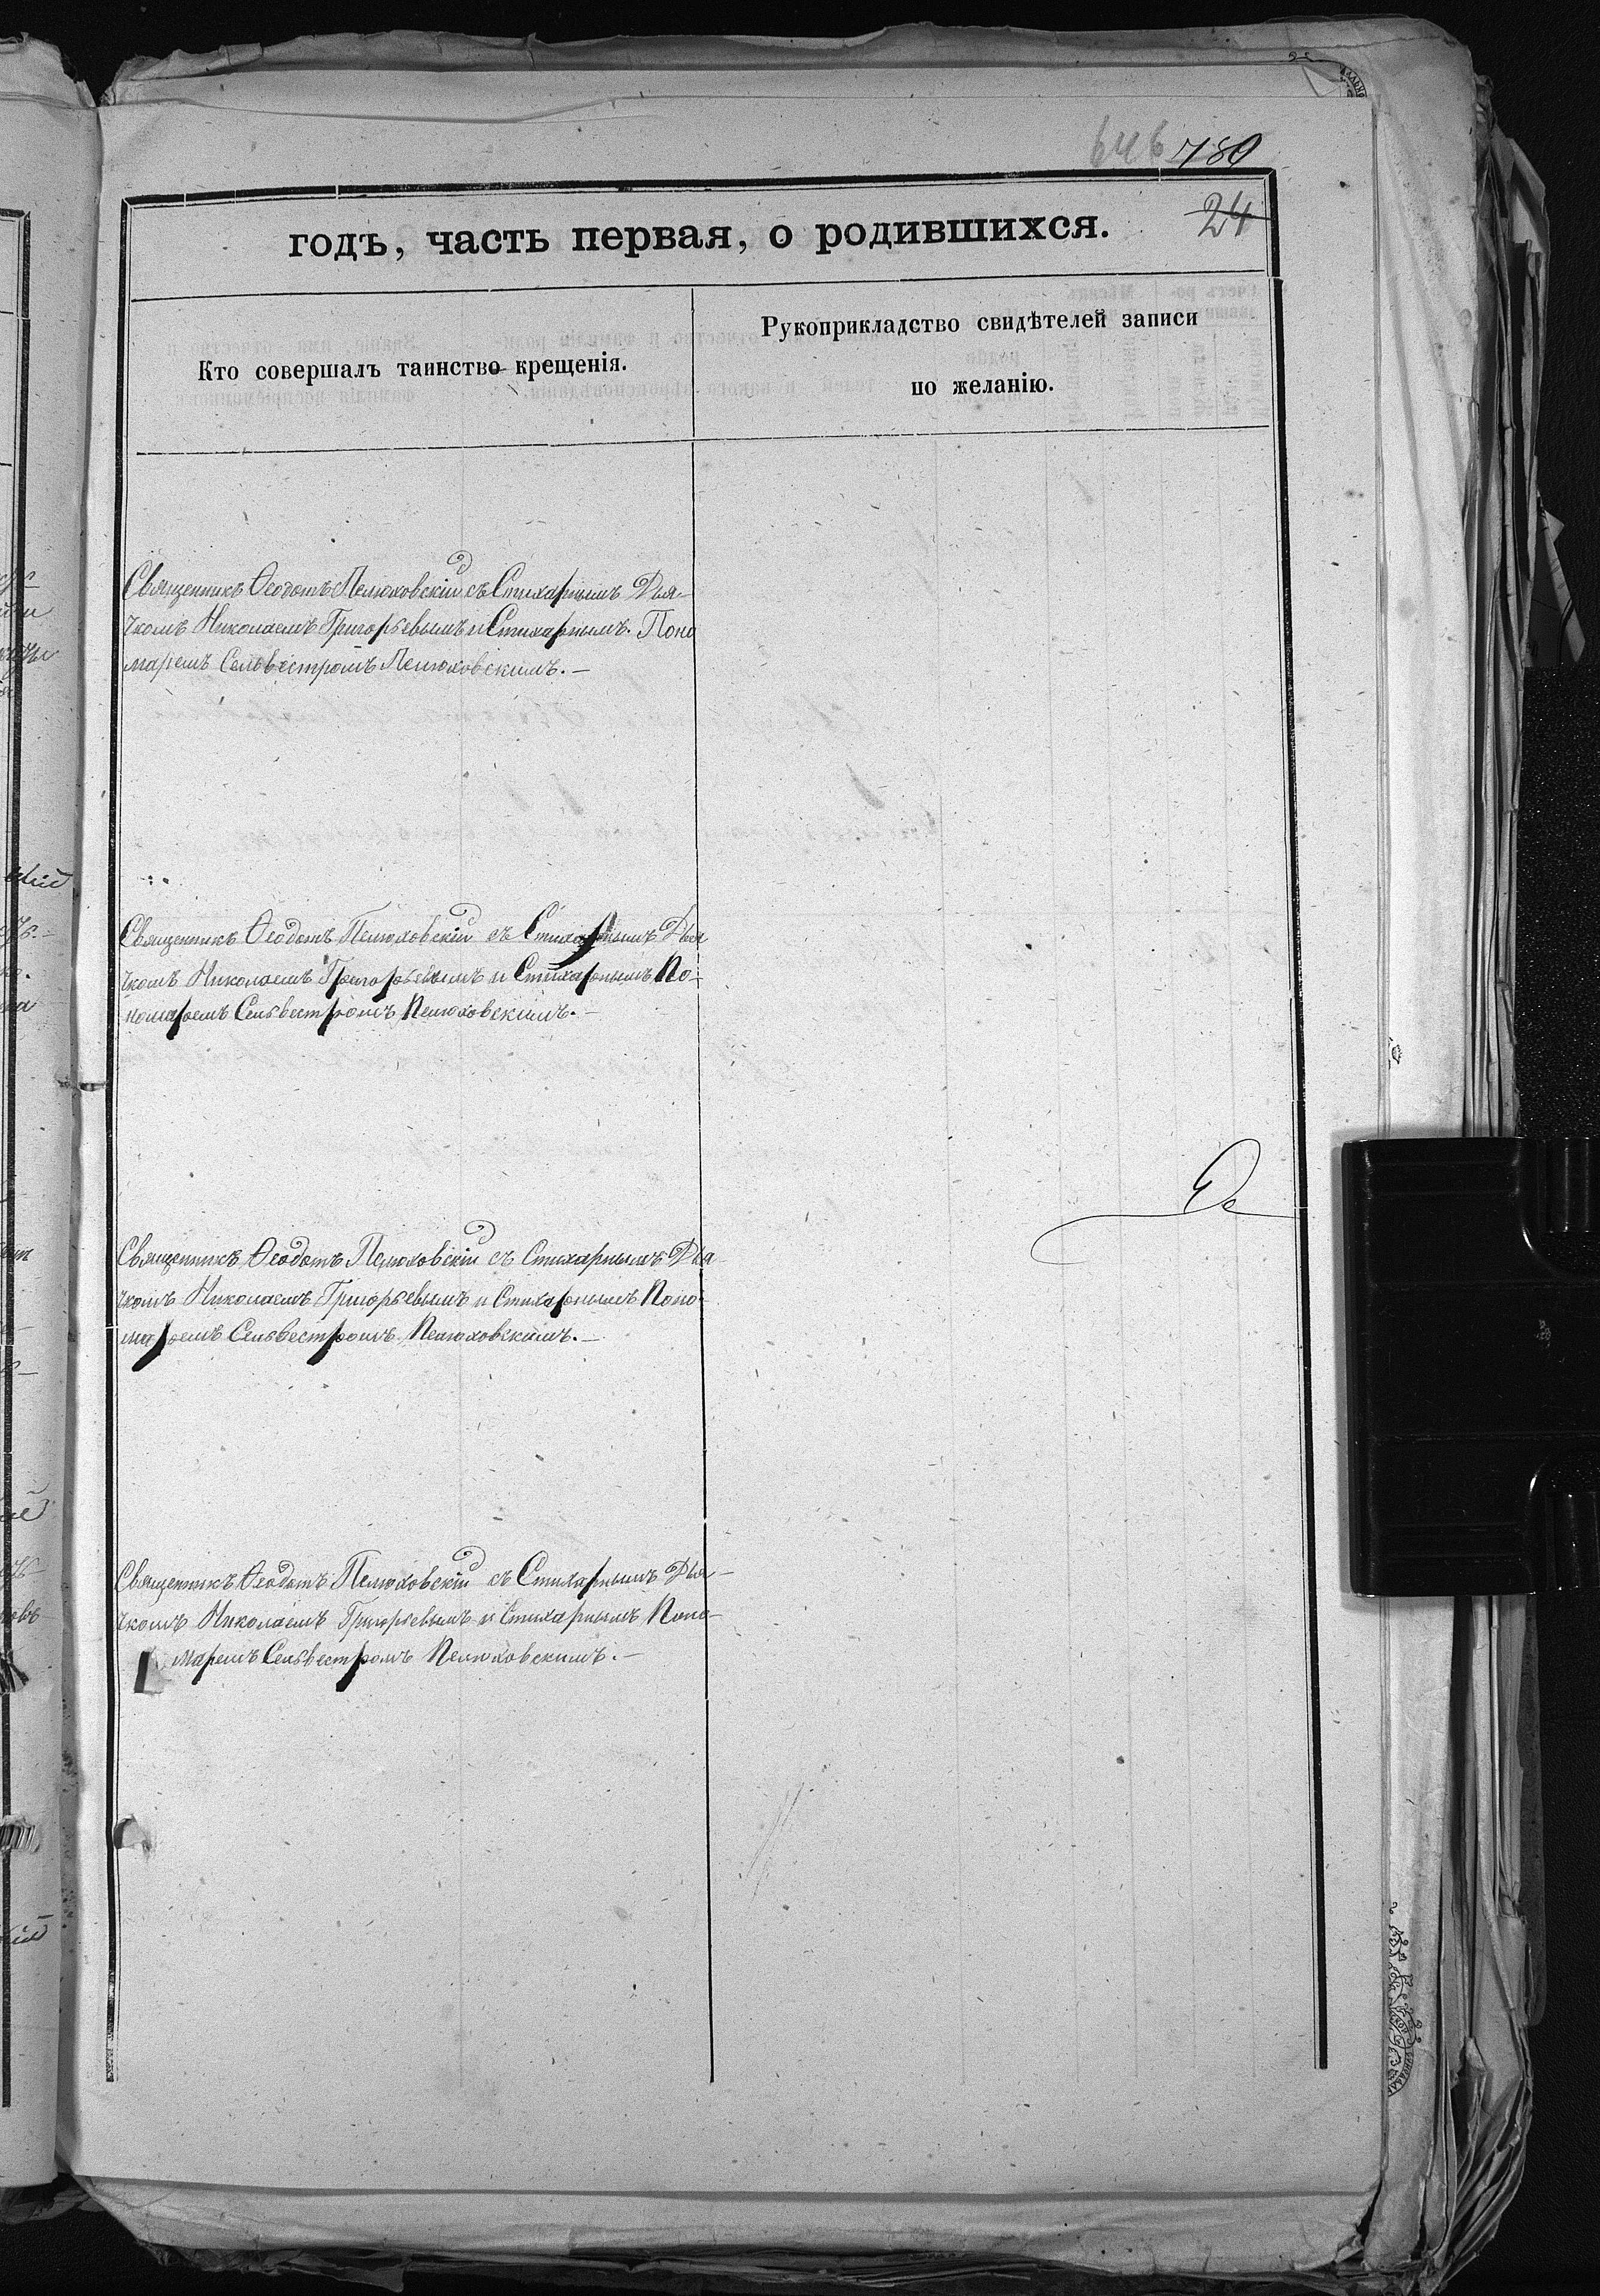 646 780
24
годъ, часть первая, о родившихся.
Кто совершалъ таинство крещенія.
Рукоприкладство свидѣтелей записи
по желанію.
Священникъ Ѳеодотъ Пелюховскій съ Стихарнымъ Дья-
чкомъ Николаемъ Григорьевымъ и Стихарнымъ Поно
маремъ Сельвестромъ Пелюховскимъ.—
Священникъ Ѳеодотъ Пелюховскій съ Стихарнымъ Дья
чкомъ Николаемъ Григорьевымъ и Стихарнымъ По-
номаремъ Сельвестромъ Пелюховскимъ.—
Священникъ Ѳеодотъ Пелюховскій съ Стихарнымъ Дья
чкомъ Николаемъ Григорьевымъ и Стихарнымъ Поно-
маремъ Сельвестромъ Пелюховскимъ.—
Священникъ Ѳеодотъ Пелюховскій съ Стихарнымъ Дья-
чкомъ Николаемъ Григорьевымъ и Стихарнымъ Поно-
маремъ Сельвестромъ Пелюховскимъ.—